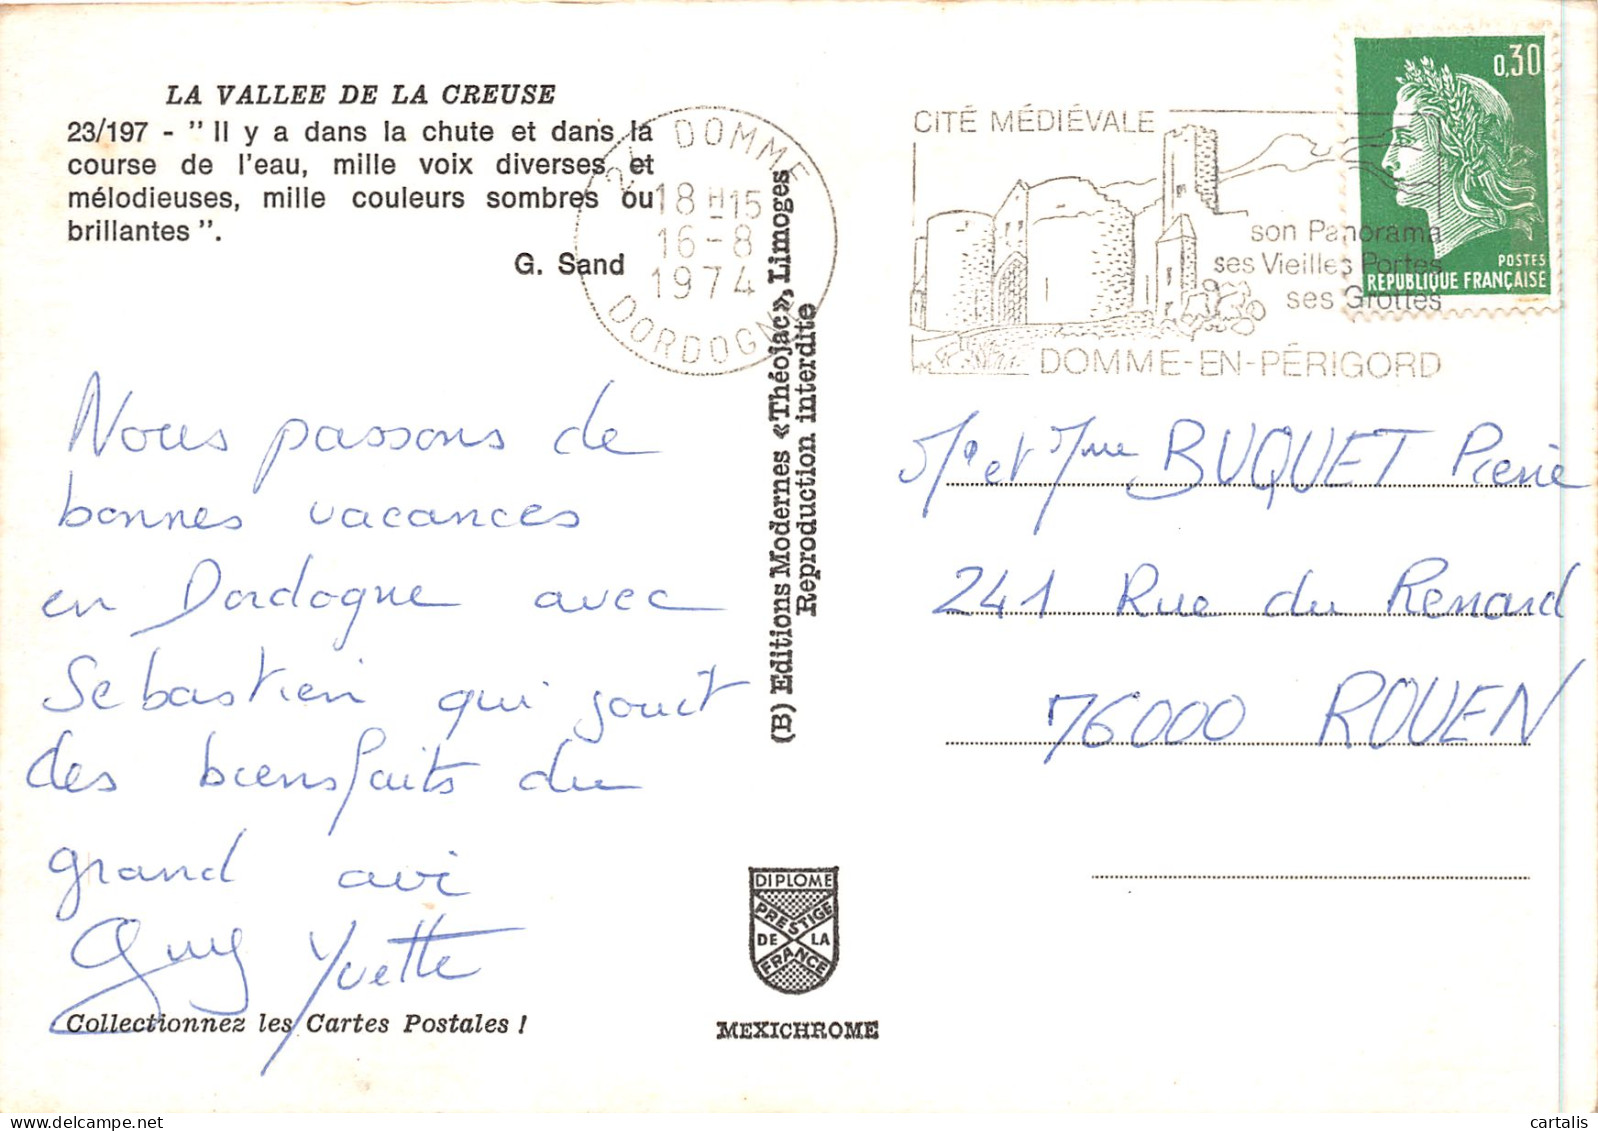 LA VALLEE DE LA CREUSE
23/197 - " Il y a dans la chute et dans la
course de l'eau, mille voix diverses et
mélodieuses, mille couleurs sombres ou
brillantes ".
G. Sand
Nous passons de
bonnes vacances
en Dordogne avec
Sebastien qui jouit
des bienfaits du
grand air
Guy Yvette
Collectionnez les Cartes Postales !
DOMME
18 H15
16-8
1974
DORDOGNE
(B) Editions Modernes «Théojac», Limoges
Reproduction interdite
DIPLOME
PRESTIGE
DE LA
FRANCE
MEXICHROME
CITÉ MÉDIÉVALE
son Panorama
ses Vieilles Portes
ses Grottes
DOMME-EN-PÉRIGORD
0,30
POSTES
REPUBLIQUE FRANÇAISE
Mr et Mme BUQUET Pierre
241 Rue du Renard
76000 ROUEN
cartalis